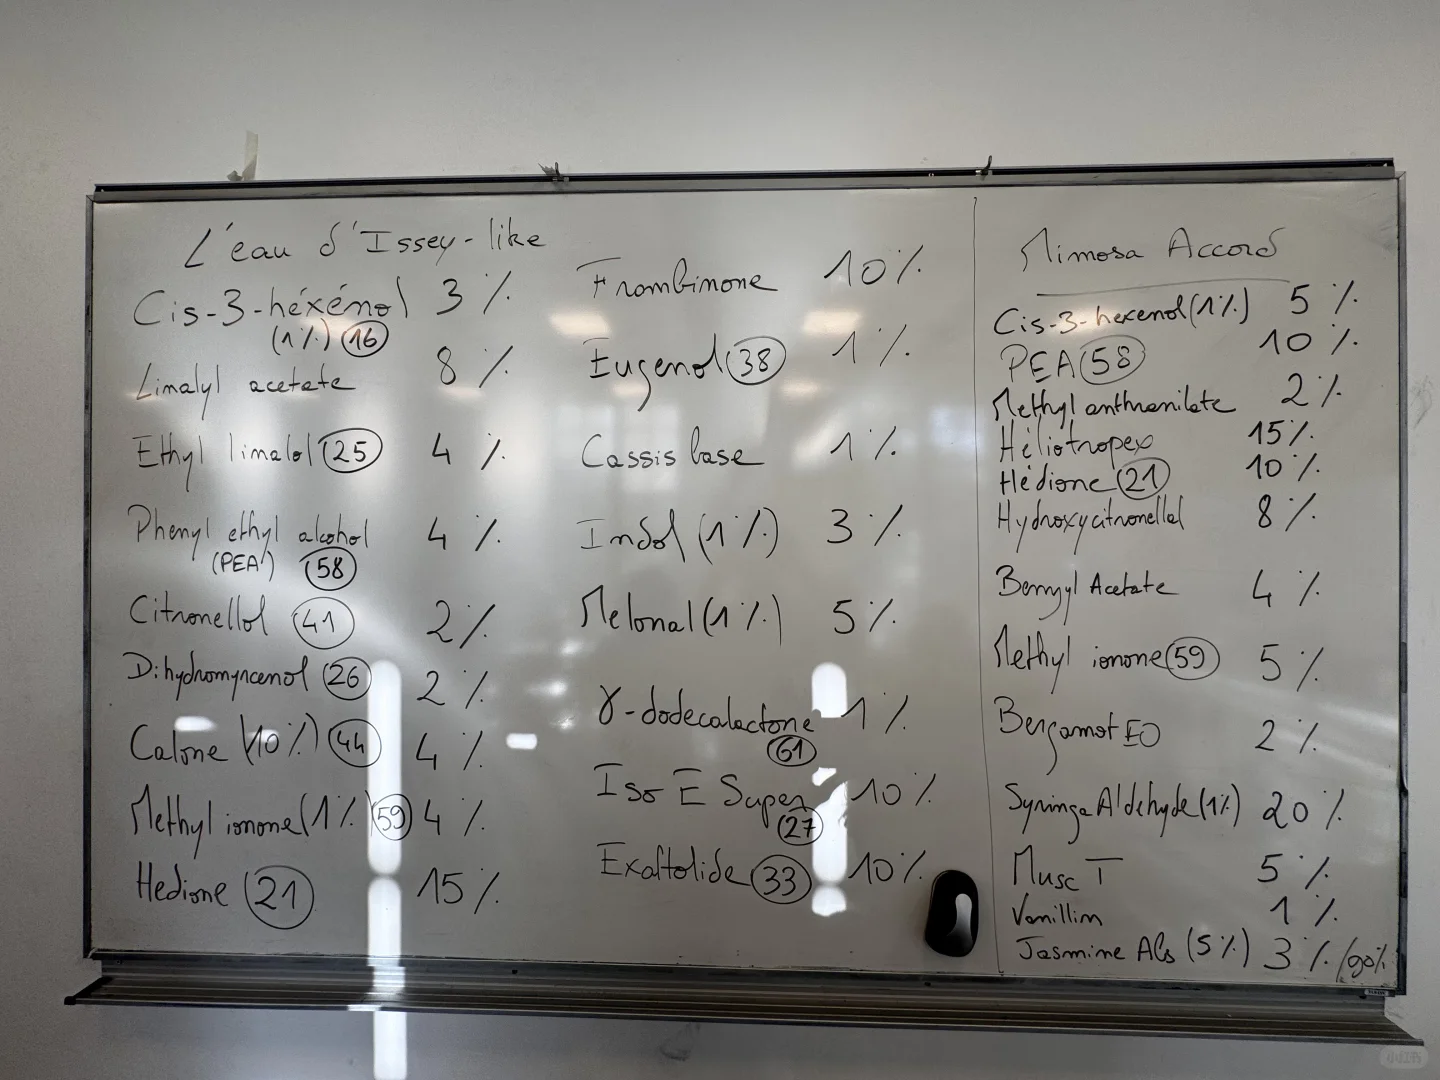 L'eau d'Issey-like
Cis-3-héxénol 3 %
(1%) 16
Linalyl acetate 8 %
Ethyl linalol 25 4 %
Phenyl ethyl alcohol 4 %
(PEA) 58
Citronellol 41 2 %
Dihydromyrcenol 26 2 %
Calone (10%) 44 4 %
Methyl ionone (1%) 59 4 %
Hedione 21 15 %
Frambinone 10 %
Eugenol 38 1 %
Cassis base 1 %
Indol (1%) 3 %
Melonal (1%) 5 %
γ-dodecalactone 1 %
61
Iso E Super 10 %
27
Exaltolide 33 10 %
Mimosa Accord
Cis-3-hexenol (1%) 5 %
PEA 58 10 %
Methyl anthranilate 2 %
Héliotropex 15 %
Hédione 21 10 %
Hydroxycitronellal 8 %
Benzyl Acetate 4 %
Methyl ionone 59 5 %
Bergamot EO 2 %
Syringa Aldehyde (1%) 20 %
Musc T 5 %
Vanillin 1 %
Jasmine Abs (5%) 3 % /90%
小红书